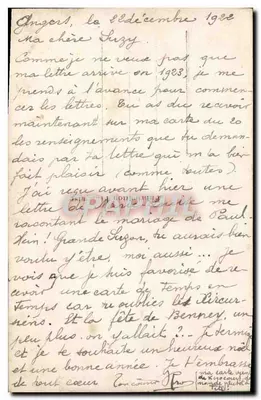 Angers, le 22 décembre 1922
Ma chère Suzy.
Comme je ne veux pas que
ma lettre arrive en 1923, je me
prends à l'avance pour commen-
cer les lettres. Tu as dû recevoir
maintenant sur ma carte du 20
les renseignements que tu deman-
dais par ta lettre qui m'a bien
fait plaisir (comme toutes)
J'ai reçu avant hier une
lettre de me
racontant le mariage de Paul.
Hein! Grande Suzon, tu aurais bien
voulu y'être, moi aussi... je
vois que je suis favorisé de re-
cevoir une carte de temps en
temps car tu oublies les
Et la fête de un
peu plus on y allait?.. Je termine
et je te souhaite un heureux noël
et une bonne année. Je t'embrasse
de tout coeur
ma carte